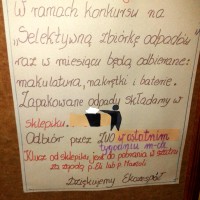 W ramach konkursu na
"Selektywną zbiórkę odpadów"
raz w miesiącu będą odbierane:
makulatura, nakrętki i baterie.
Zapakowane odpady składamy w
sklepiku.
Odbiór przez ZUO w ostatnim
tygodniu m-ca
Klucz od sklepiku jest do pobrania w
za zgodą p. Eli lub p.
Dziękujemy Ekozespół